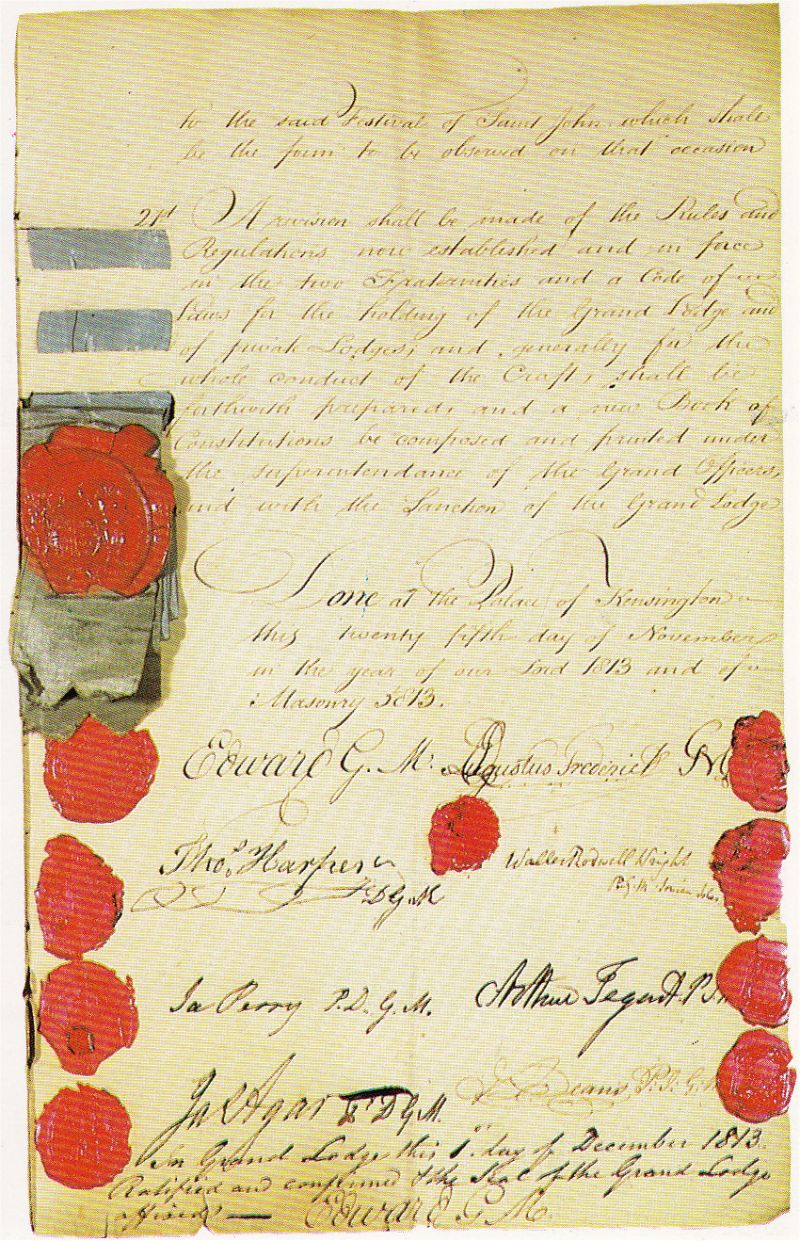 to the said Festival of Saint John which shall
be the form to be observed on that occasion
21st A revision shall be made of the Rules and
Regulations now established and in force
in the two Fraternities and a Code of
Laws for the holding of the Grand Lodge and
of private Lodges, and, generally for the
whole conduct of the Craft, shall be
forthwith prepared, and a new Book of
Constitutions be composed and printed under
the superintendance of the Grand Officers,
and with the Sanction of the Grand Lodge
Done at the Palace of Kensington
this twenty fifth day of November
in the year of our Lord 1813 and of
Masonry 5813.
Edward G. M. Augustus Frederick GM
Thos. Harper Waller Rodwell Wright
D G M P.G.M. Ionian Isles
Ja Perry P. D. G. M. Arthur Tegart P.
Jas Agar D G M. J. Deans, P. J. G.
In Grand Lodge this 1st day of December 1813.
Ratified and confirmed & the Seal of the Grand Lodge
affixed — Edward G M.